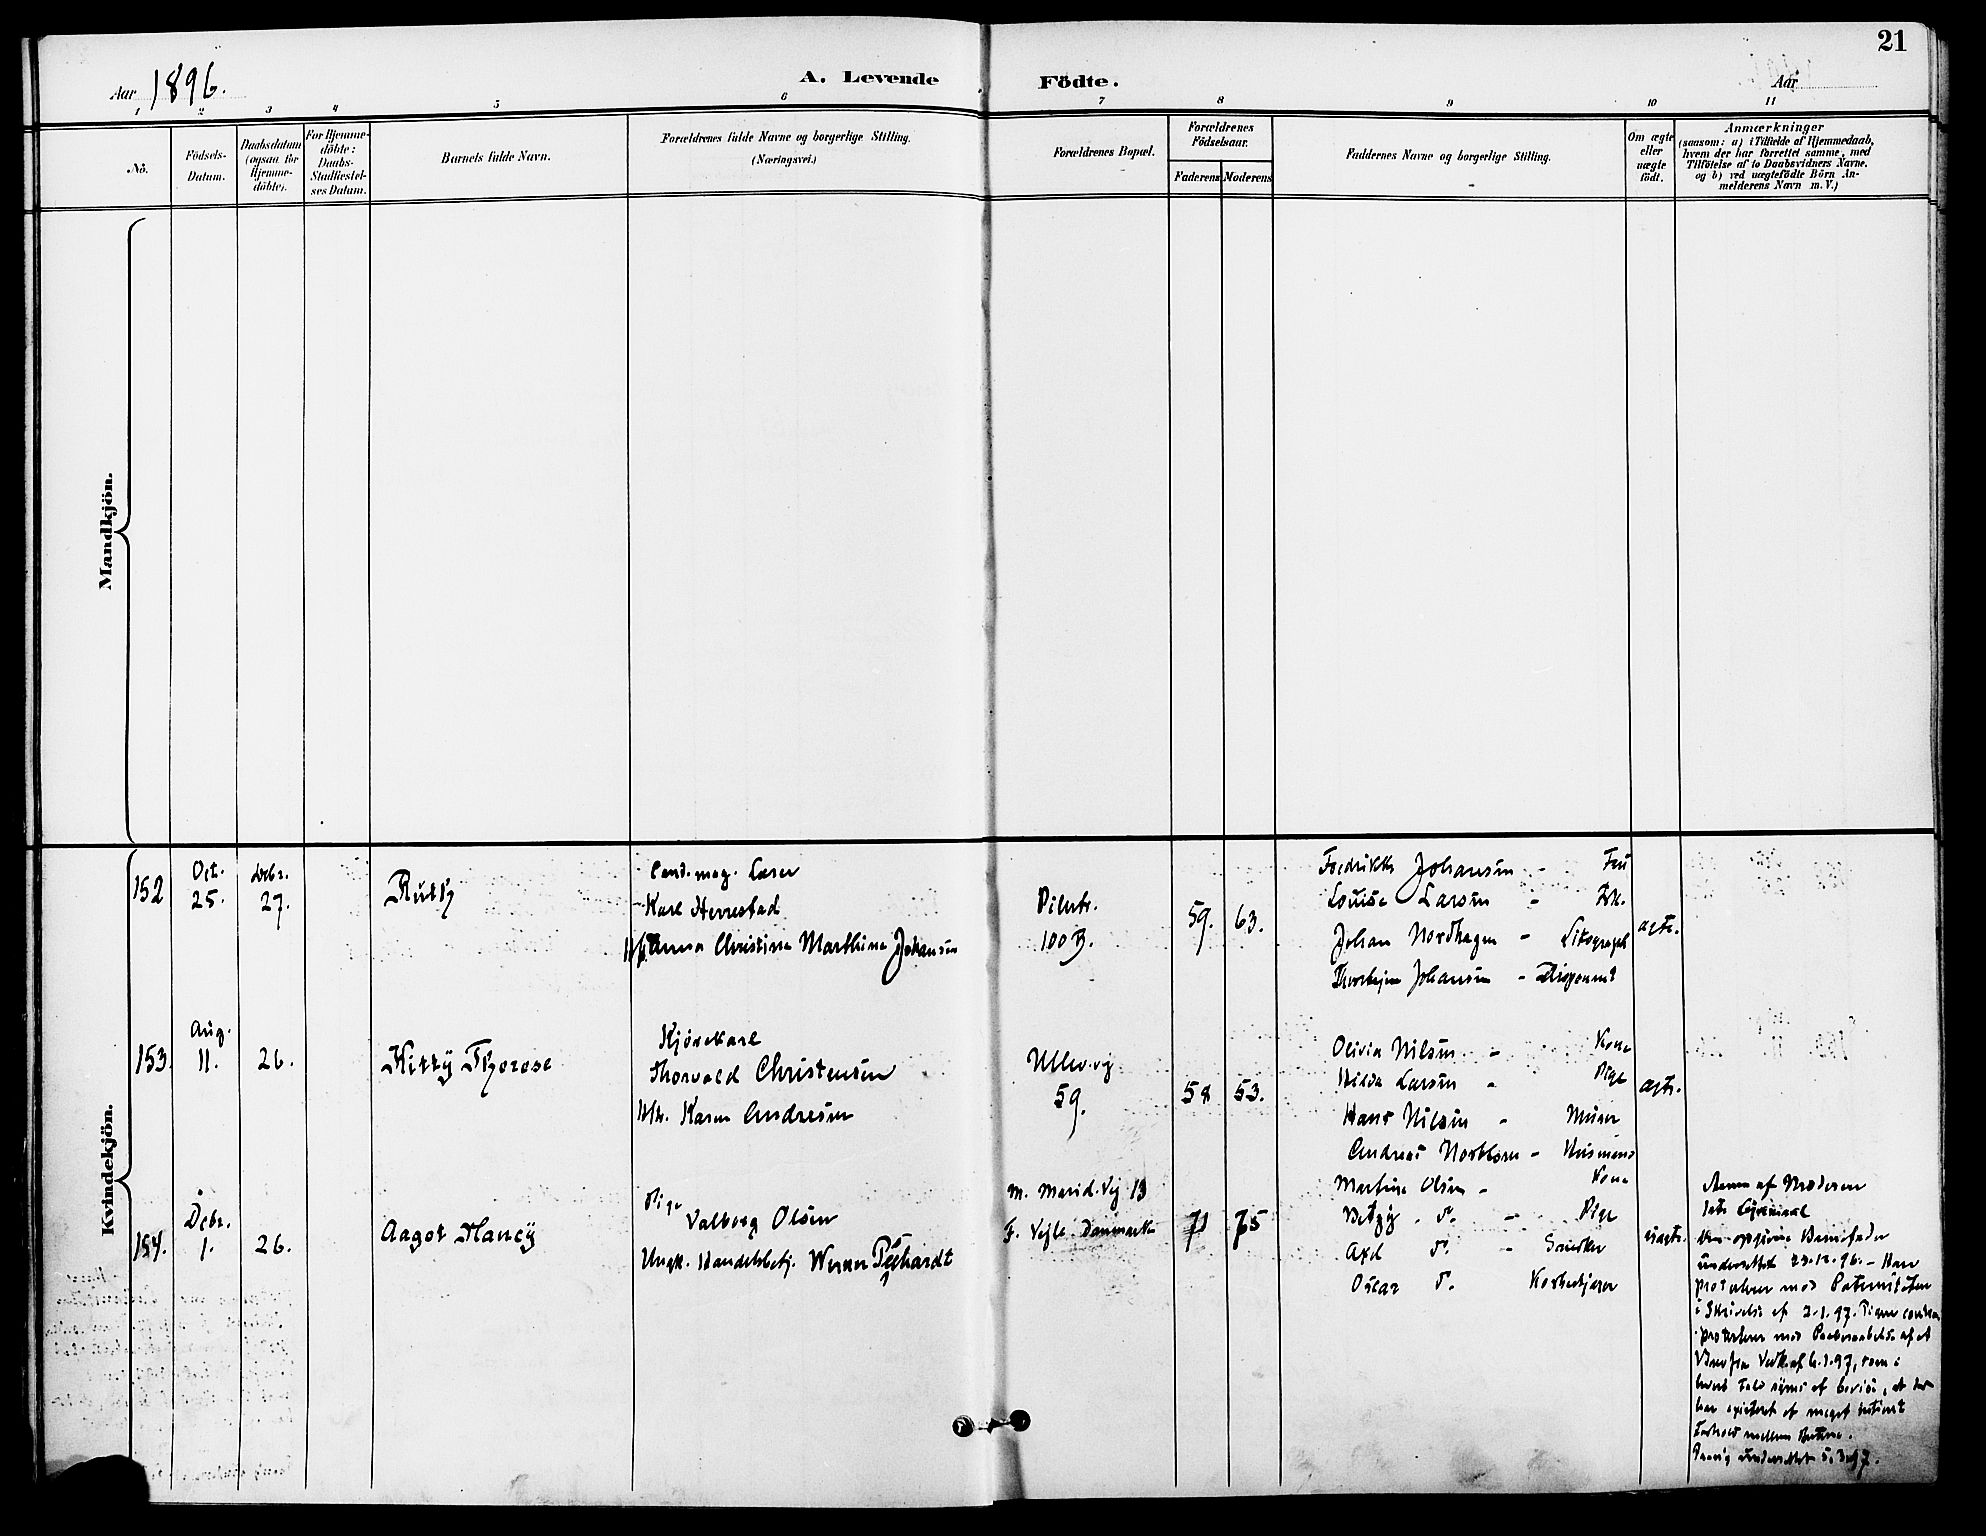 21
Aar 1896.
A. Levende Födte.
Aar
1 2 3 4 5 6 7 8 9 10 11
No.
Födsels-
Datum.
Daabsdatum
(ogsaa for
Hjemme-
döbte).
For Hjemme-
döbte:
Daabs-
Stadfæstel-
ses Datum.
Barnets fulde Navn.
Forældrenes fulde Navne og borgerlige Stilling.
(Næringsvei.)
Forældrenes Bopæl.
Forældrenes
Födselsaar.
Faderens
Moderens
Faddernes Navne og borgerlige Stilling.
Om ægte
eller
uægte
født.
Anmærkninger
(saasom: a) i Tilfælde af Hjemmedaab,
hvem der har forrettet samme, med
Tilföielse af to Daabsvidners Navne.
og b) ved uægtefödte Börn An-
melderens Navn m. V.)
Mandkjön.
Kvindekjön.
152
Oct.
25.
Debr.
27.
Ruth
Cand. mag. Lærer
Karl Herrestad
Anna Christine Marthine Johansen
Pilestr.
100 B.
59.
63.
Fredrikke Johansen - Fru
Louise Larsen - Frk.
Johan Nordhagen - Litograph
Johansen - Disponent
ægte.
153.
Aug.
11.
26.
Kitty Therese
Kjørekarl
Thorvald Christensen
Htr. Karen Andresen
Ullev.vg
59.
58
53.
Olivia Nilsen - Kone
Hilda Larsen - Pige
Hans Nilsen - Murer
Andreas - Husmand
ægte.
154.
Debr.
1.
26.
Aagot Nancy
Pige
Valborg Olsen
Ungk. Handelsbetj. Werner
M. Marid.vej 13
F. Vejle Danmark
71
75
Martine Olsen - Kone
Betzy d. - Pige
Axel d. - Snedker
Oscar d.
uægte.
Navn af Moderen
opgivne Barnefader
underrettet 29.12.96. - Han
protesterer mod Paterniteten
i Skrivelse af 2.1.97. Pigen
protesterer med Paaberaabelse af et
Brev fra Vedk. af 6.1.97, som i
hvert Fald synes at bevise, at der
har existeret et meget intimt
Forhold mellem Partene.
underrettet 5.3.97.